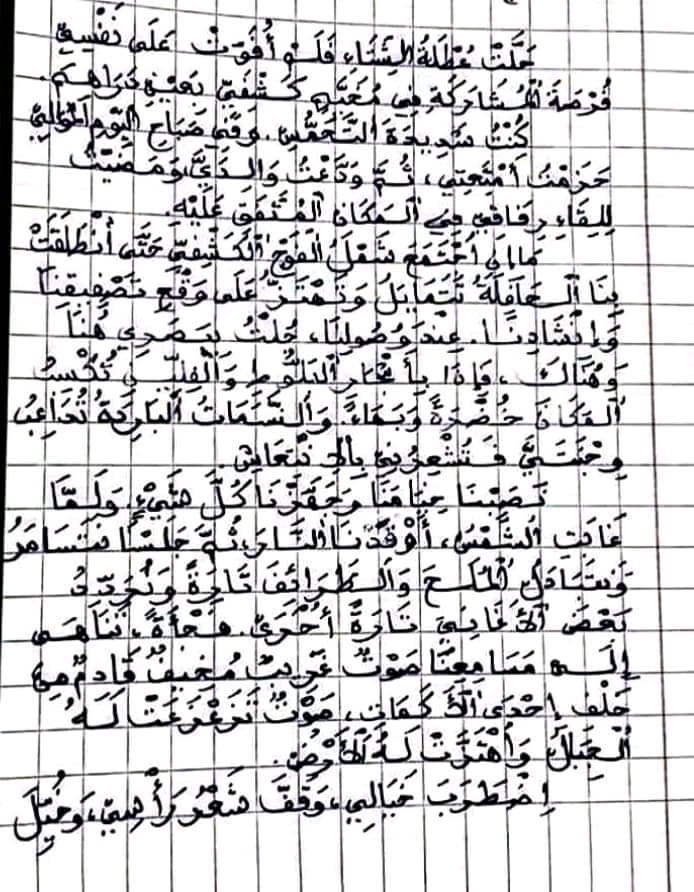 حَلَّتْ عُطْلَةُ الشِّتَاءِ فَلَمْ أُفَوِّتْ عَلَى نَفْسِي
فُرْصَةَ الْمُشَارَكَةِ فِي مُخَيَّمٍ كَشْفِيٍّ بِعَيْنِ دَرَاهِم.
كُنْتُ شَدِيدَةَ التَّحَمُّسِ. وَفِي صَبَاحِ الْيَوْمِ الْمُوَالِي
حَزَمْتُ أَمْتِعَتِي، ثُمَّ وَدَّعْتُ وَالِدَيَّ وَمَضَيْتُ
لِلِقَاءِ رِفَاقِي فِي الْمَكَانِ الْمُتَّفَقِ عَلَيْهِ.
مَا إِنِ اجْتَمَعَ شَمْلُ الْفَوْجِ الْكَشْفِيِّ حَتَّى انْطَلَقَتْ
بِنَا الْحَافِلَةُ تَتَمَايَلُ وَتَهْتَزُّ عَلَى وَقْعِ تَصْفِيقِنَا
وَإِنْشَادِنَا. عِنْدَ وُصُولِنَا، جُلْتُ بِبَصَرِي هُنَا
وَهُنَاكَ، فَإِذَا بِأَشْجَارِ الْبَلُّوطِ وَالْفِلِّينِ تُكْسِبُ
الْمَكَانَ خُضْرَةً وَبَهَاءً. وَالنَّسَمَاتُ الْبَارِدَةُ تُدَاعِبُ
وِجْنَتَيَّ فَتُشْعِرُنِي بِالِانْتِعَاشِ.
نَصَبْنَا خِيَامَنَا وَجَهَّزْنَا كُلَّ شَيْءٍ، وَلَمَّا
غَابَتِ الشَّمْسُ، أَوْقَدْنَا النَّارَ، ثُمَّ جَلَسْنَا نَتَسَامَرُ
وَنَتَبَادَلُ الْمُلَحَ وَالطَّرَائِفَ تَارَةً وَنُرَدِّدُ
بَعْضَ الْأَغَانِي تَارَةً أُخْرَى. فَجْأَةً، تَنَاهَى
إِلَى مَسَامِعِنَا صَوْتٌ غَرِيبٌ مُخِيفٌ قَادِمٌ مِنْ
خَلْفِ إِحْدَى الْأَكَمَاتِ، صَوْتٌ تَزَعْزَعَتْ لَهُ
الْجِبَالُ وَاهْتَزَّتْ لَهُ الْأَرْضُ.
اِضْطَرَبَ خَيَالِي، وَقَفَّ شَعْرُ رَأْسِي، وَخُيِّلَ